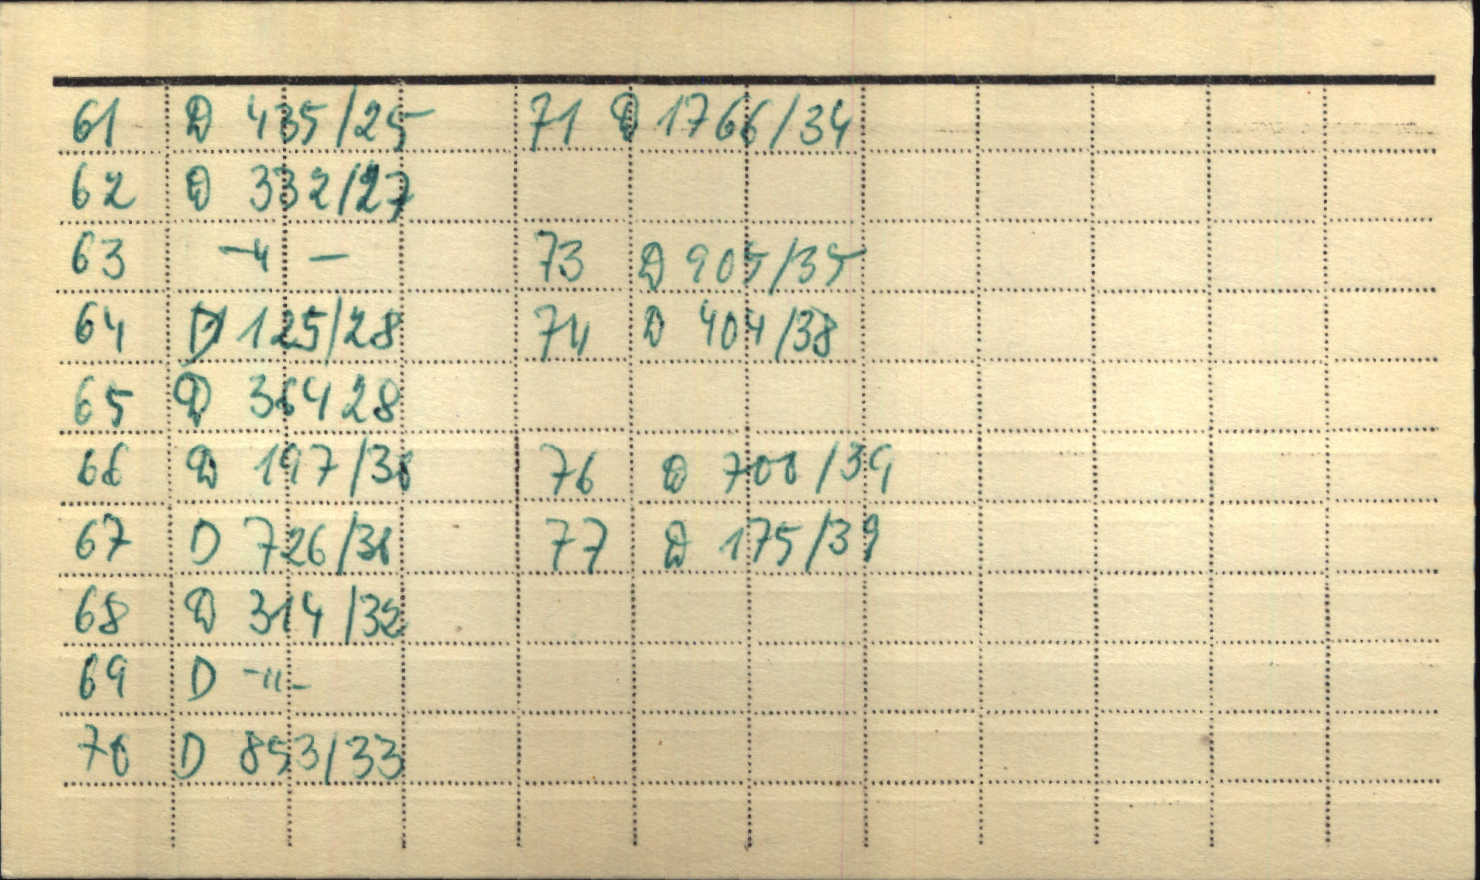 61 D 435/25 71 D 1766/34
62 D 332/27
63 -"- 73 D 905/35
64 D 125/28 74 D 404/38
65 D 364 28
66 D 197/30 76 D 700/39
67 D 726/31 77 D 175/39
68 D 314/32
69 D -"-
70 D 853/33